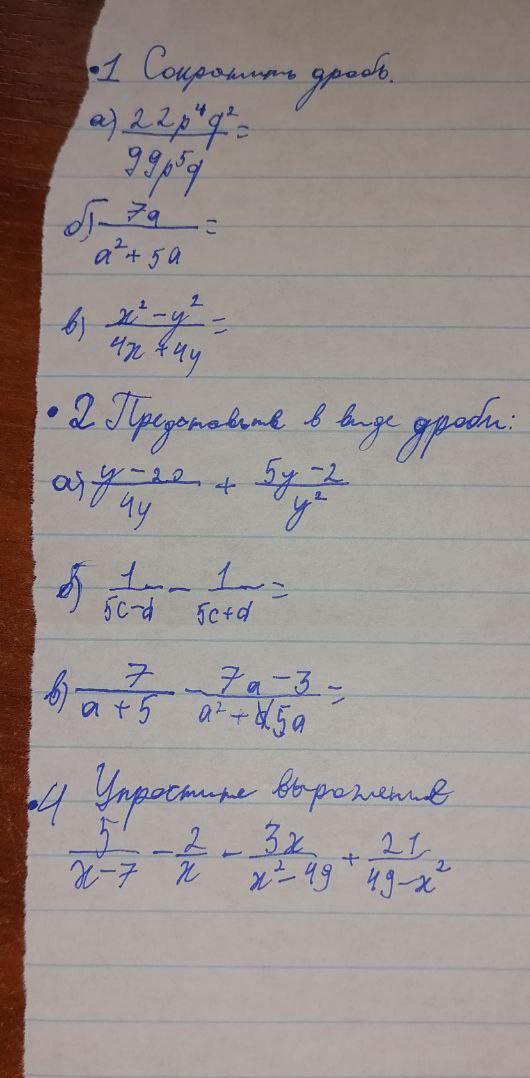 •1 Сократить дробь.
а) 22p⁴q² / 99p⁵q =
б) 7a / a² + 5a =
в) x² − y² / 4x + 4y =
•2 Представьте в виде дроби:
а) y − 20 / 4y + 5y − 2 / y²
б) 1 / 5c − d − 1 / 5c + d =
в) 7 / a + 5 − 7a − 3 / a² + 5a =
•4 Упростите выражение
5 / x − 7 − 2 / x − 3x / x² − 49 + 21 / 49 − x²